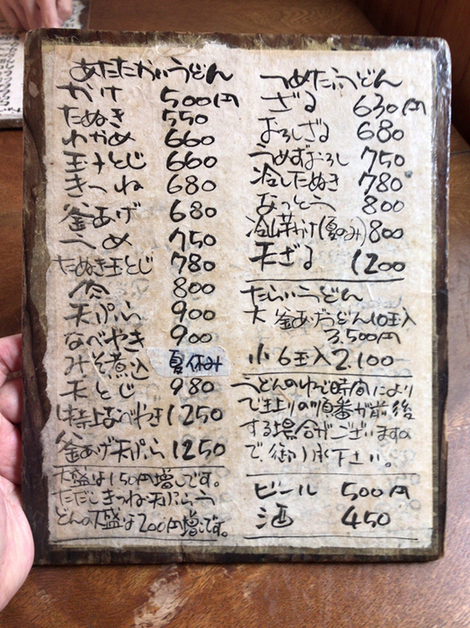 あたたかいうどん
かけ 500円
たぬき 550
わかめ 660
玉子とじ 660
きつね 680
釜あげ 680
うめ 750
たぬき玉とじ 780
肉 800
天ぷら 900
なべやき 900
みそ煮込 夏休み
天とじ 980
特上なべやき 1250
釜あげ天ぷら 1250
大盛は150円増しです。
ただしきつね天ぷらう
どんの大盛は200円増しです。
つめたいうどん
ざる 630円
おろしざる 680
うめずおろし 750
冷したぬき 780
なっとう 800
冷山芋かけ(夏のみ) 800
天ざる 1200
たらいうどん
大 釜あげうどん10玉入
3,500円
小 6玉入 2.100
うどんのゆで時間により
で上りの順番が前後
する場合がございますの
で、御了承下さい。
ビール 500円
酒 450